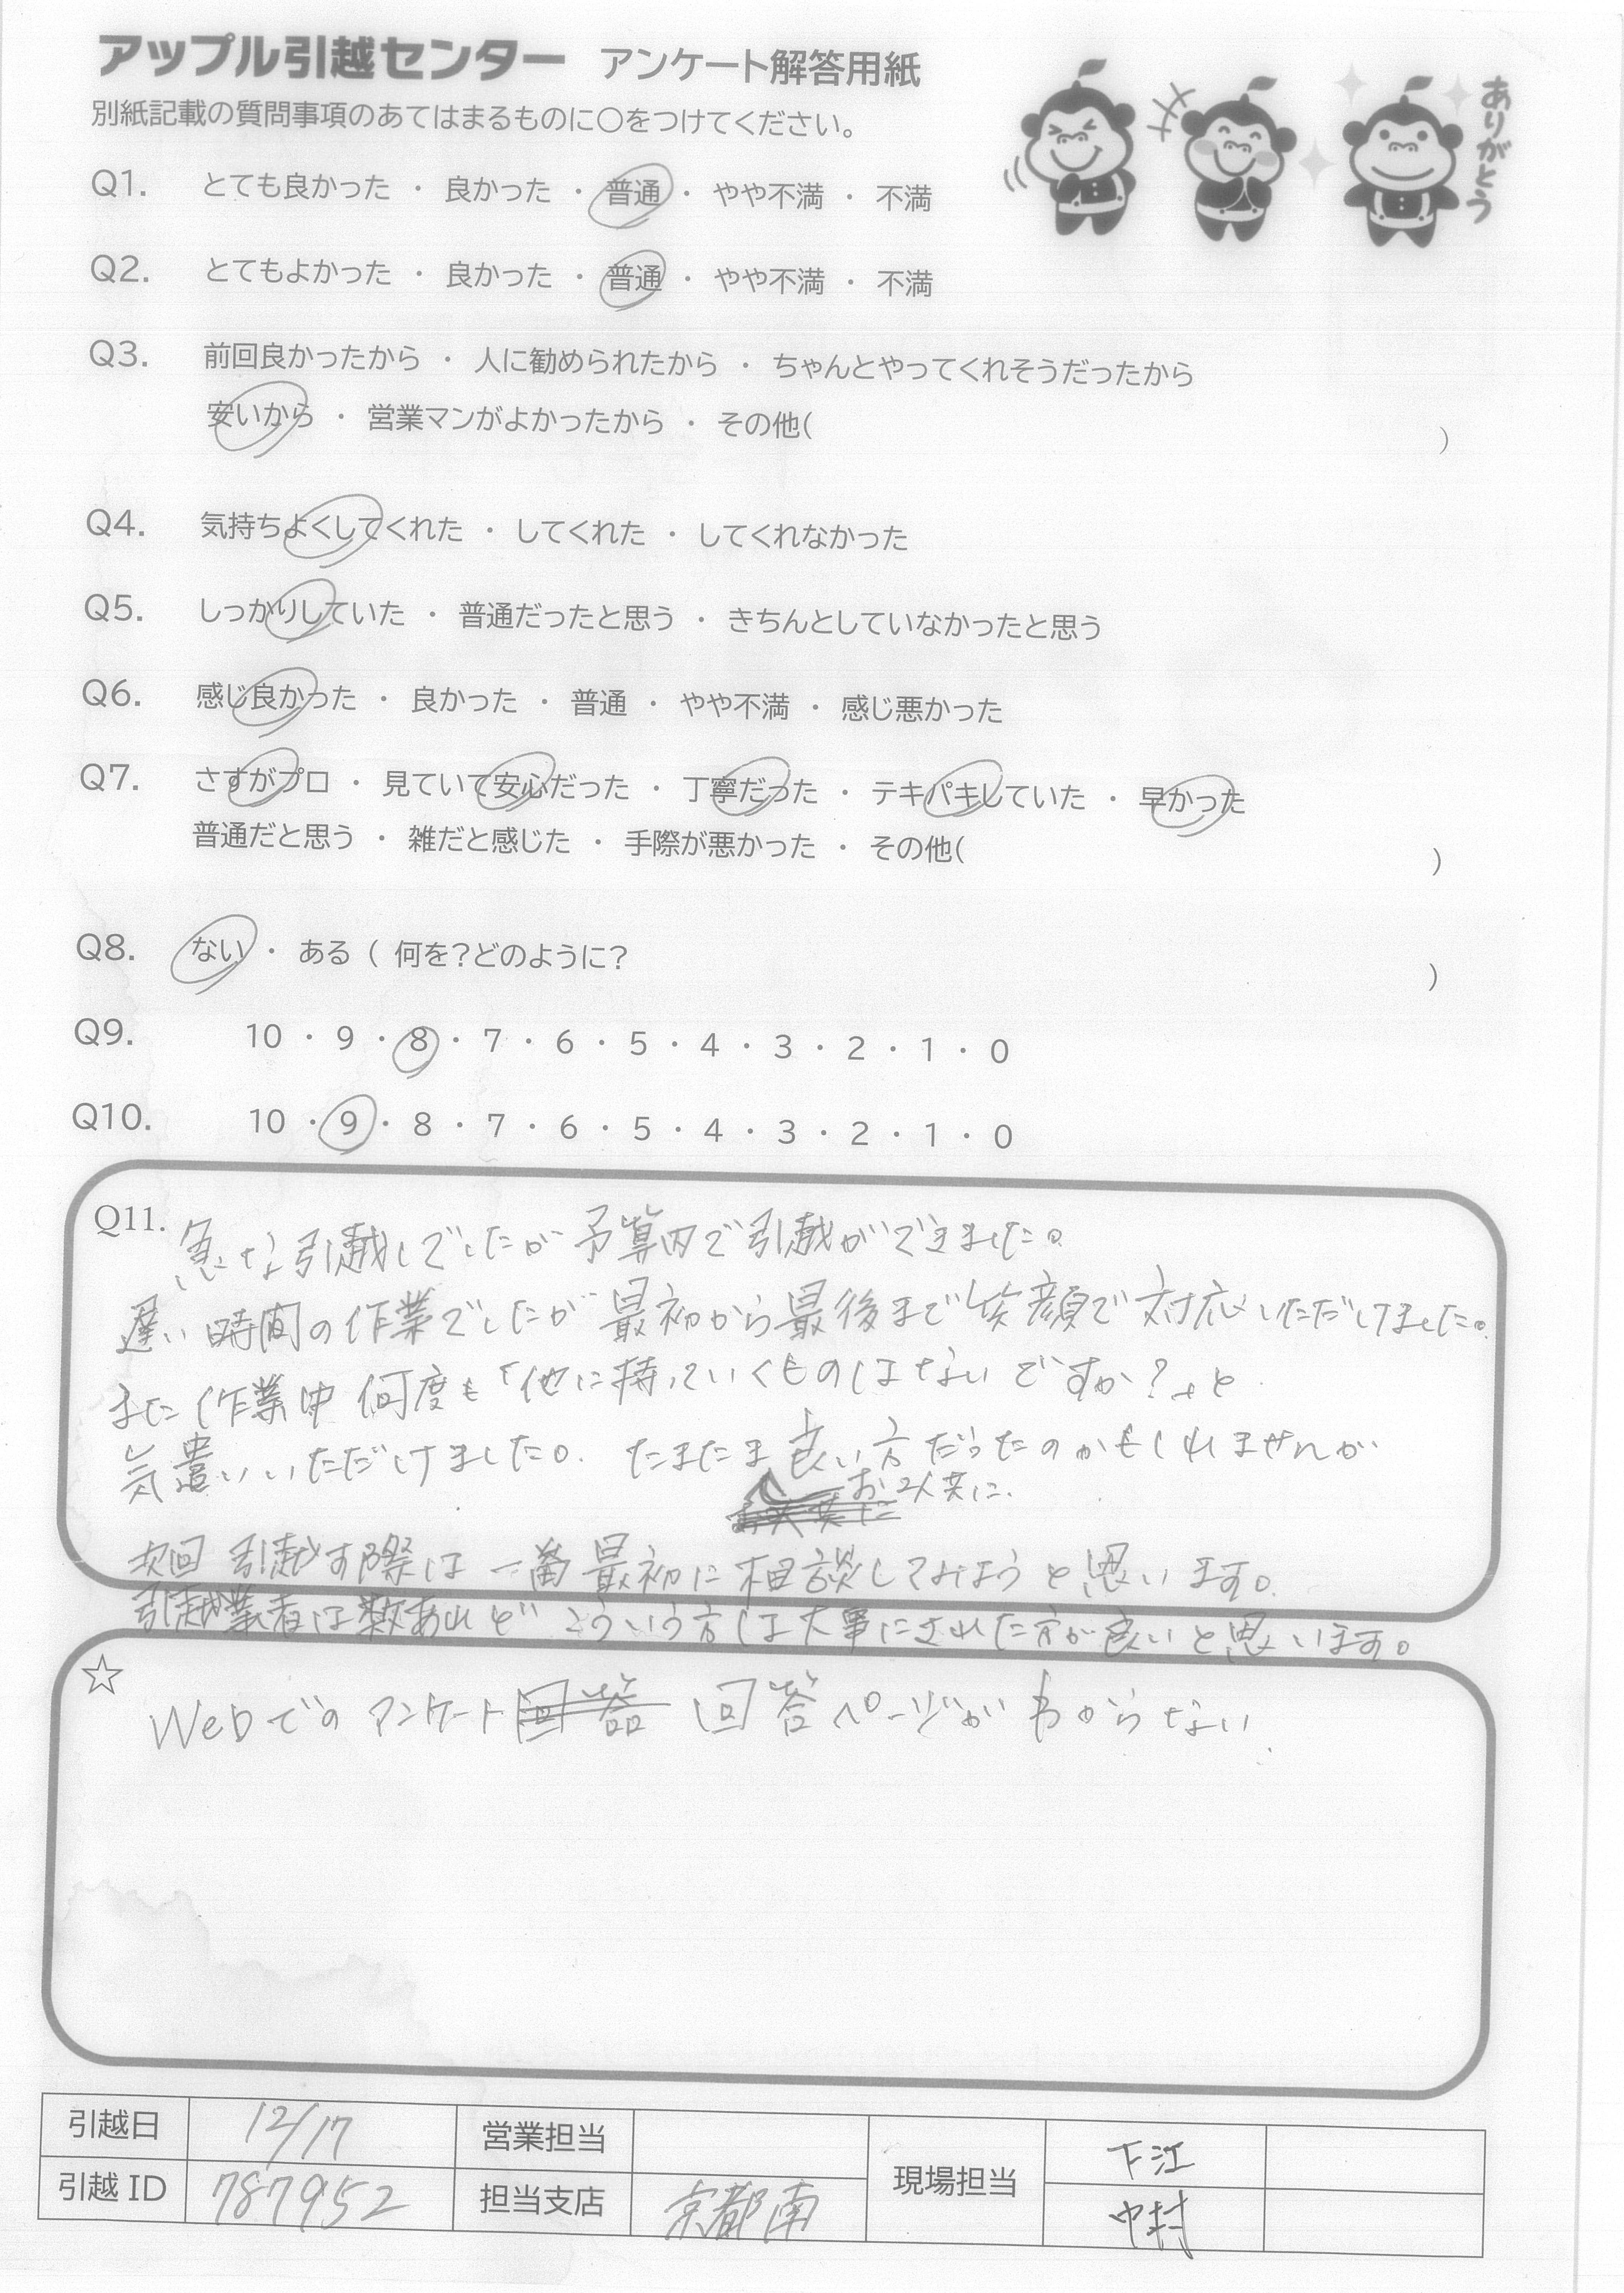 アップル引越センター アンケート解答用紙
別紙記載の質問事項のあてはまるものに○をつけてください。
ありがとう
Q1. とても良かった ・ 良かった ・ 普通 ・ やや不満 ・ 不満
Q2. とてもよかった ・ 良かった ・ 普通 ・ やや不満 ・ 不満
Q3. 前回良かったから ・ 人に勧められたから ・ ちゃんとやってくれそうだったから
安いから ・ 営業マンがよかったから ・ その他( )
Q4. 気持ちよくしてくれた ・ してくれた ・ してくれなかった
Q5. しっかりしていた ・ 普通だったと思う ・ きちんとしていなかったと思う
Q6. 感じ良かった ・ 良かった ・ 普通 ・ やや不満 ・ 感じ悪かった
Q7. さすがプロ ・ 見ていて安心だった ・ 丁寧だった ・ テキパキしていた ・ 早かった
普通だと思う ・ 雑だと感じた ・ 手際が悪かった ・ その他( )
Q8. ない ・ ある ( 何を?どのように? )
Q9. 10 ・ 9 ・ 8 ・ 7 ・ 6 ・ 5 ・ 4 ・ 3 ・ 2 ・ 1 ・ 0
Q10. 10 ・ 9 ・ 8 ・ 7 ・ 6 ・ 5 ・ 4 ・ 3 ・ 2 ・ 1 ・ 0
Q11. 急な引越しでしたが予算内で引越ができました。
遅い時間の作業でしたが最初から最後まで笑顔で対応いただけました。
また作業中何度も「他に持っていくものはないですか?」と
気遣いいただけました。たまたま良い方だったのかもしれませんが
お2人共に
次回引越す際は一番最初に相談してみようと思います。
引越業者は数あれどこういう方は大事にされた方が良いと思います。
☆
Webでのアンケート回答ページがわからない
引越日 12/17 営業担当 現場担当 下江
引越ID 787952 担当支店 京都南 中村